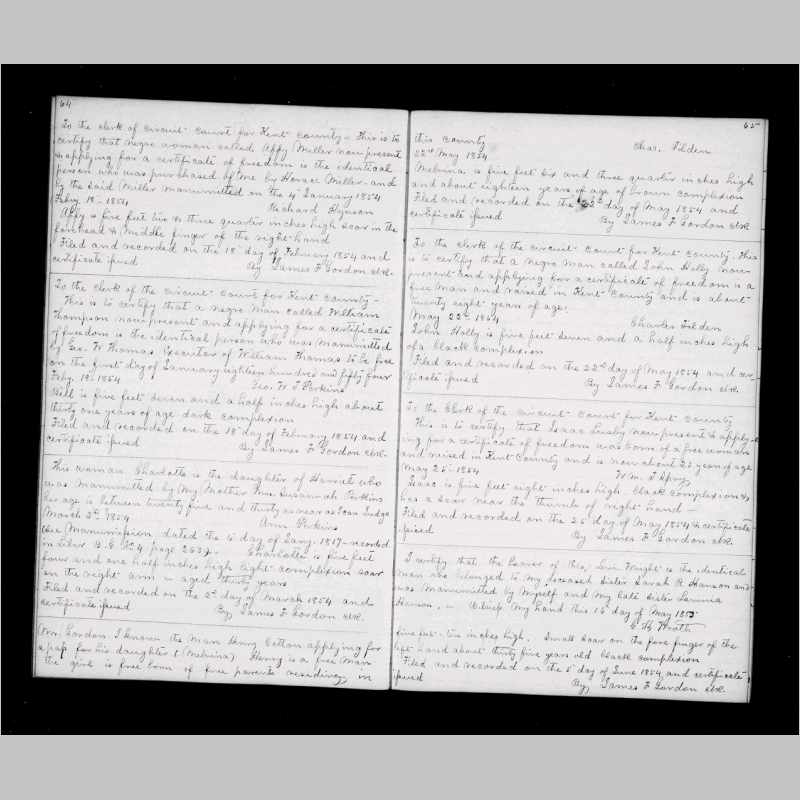 64
To the clerk of circuit court for Kent County - This is to
certify that negro woman called Affy Miller now present
& applying for a certificate of freedom is the identical
person who was purchased of me by Horace Miller - and
by the said Miller manumitted on the 4th January 1854
Feby. 18th 1854 Richard Hynson
Affy is five feet two & three quarter inches high scar in the
forehead & middle finger of the right hand
Filed and recorded on the 18th day of February 1854 and
certificate issued By James F Gordon clk.
To the clerk of the circuit court for Kent County -
This is to certify that a negro man called William
Thompson now present and applying for a certificate
of freedom is the identical person who was manumitted
by Geo. W Thomas Executor of William Thomas to be free
on the first day of January eighteen hundred and fifty four
Feby. 18th 1854 Geo. W. T Perkins
Will is five feet seven and a half inches high about
thirty one years of age dark complexion
Filed and recorded on the 18th day of February 1854 and
certificate issued By James F Gordon clk.
This woman Charlotte is the daughter of Harriet who
was manumitted by my Mother Mrs. Susannah Perkins
her age is between twenty five and thirty as near as I can judge
March 2nd 1854 Ann Perkins
(See Manumission dated the 16 day of Jany. 1817 - recorded
in Liber W.S. No. 4 page 253) - Charlotte is five feet
four and one half inches high light complexion scar
on the right arm - aged thirty years
Filed and recorded on the 2nd day of March 1854 and
certificate issued By James F Gordon clk.
Mr. Gordon. I know the man Henry applying for
a pass for his daughter (Melvina) Henry is a free man
the girl is free born of free parents residing in
65
this County
22nd May 1854 Chas. Tilden
Melvina is five feet six and three quarter inches high
and about eighteen years of age of brown complexion
Filed and recorded on the 22nd day of May 1854 and
certificate issued By James F Gordon clk
To the clerk of the circuit court for Kent County. This
is to certify that a negro man called John Holly now
present and applying for a certificate of freedom is a
free man and raised in Kent County and is about
twenty eight years of age.
May 22nd 1854 Charles Tilden
John Holly is five feet seven and a half inches high
of a black complexion
Filed and recorded on the 22nd day of May 1854 and cer-
tificate issued By James F Gordon clk.
To the Clerk of the Circuit Court for Kent County
This is to certify that Isaac Lusby now present & apply-
ing for a certificate of freedom was born of a free woman
and raised in Kent County and is now about 23 years of age
May 25th 1854 Wm. T Spry
Isaac is five feet eight inches high black complexion &
has a scar near the thumb of right hand -
Filed and recorded on the 25th day of May 1854 & certificate
issued By James F Gordon clk.
I certify that the bearer of this, Levi Wright is the identical
man who belonged to my deceased sister Sarah R Hanson and
was manumitted by myself and my late sister
Hanson. - Witness my hand this 16 day of May 1853
Wroth
five feet two inches high. Small scar on the fore finger of the
left hand about thirty five years old black complexion
Filed and recorded on the 5 day of June 1854 and certificate
issued By, James F Gordon clk.